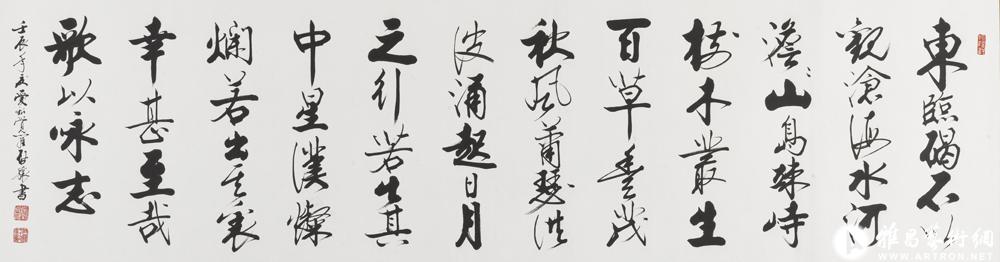 東臨碣石以
觀滄海水河
澹〻山島竦峙
樹木叢生
百草豐茂
秋風蕭瑟洪
波涌起日月
之行若出其
中星漢燦
爛若出其裏
幸甚至哉
歌以咏志
壬辰年夏 書
雅昌藝術網
WWW.ARTRON.NET